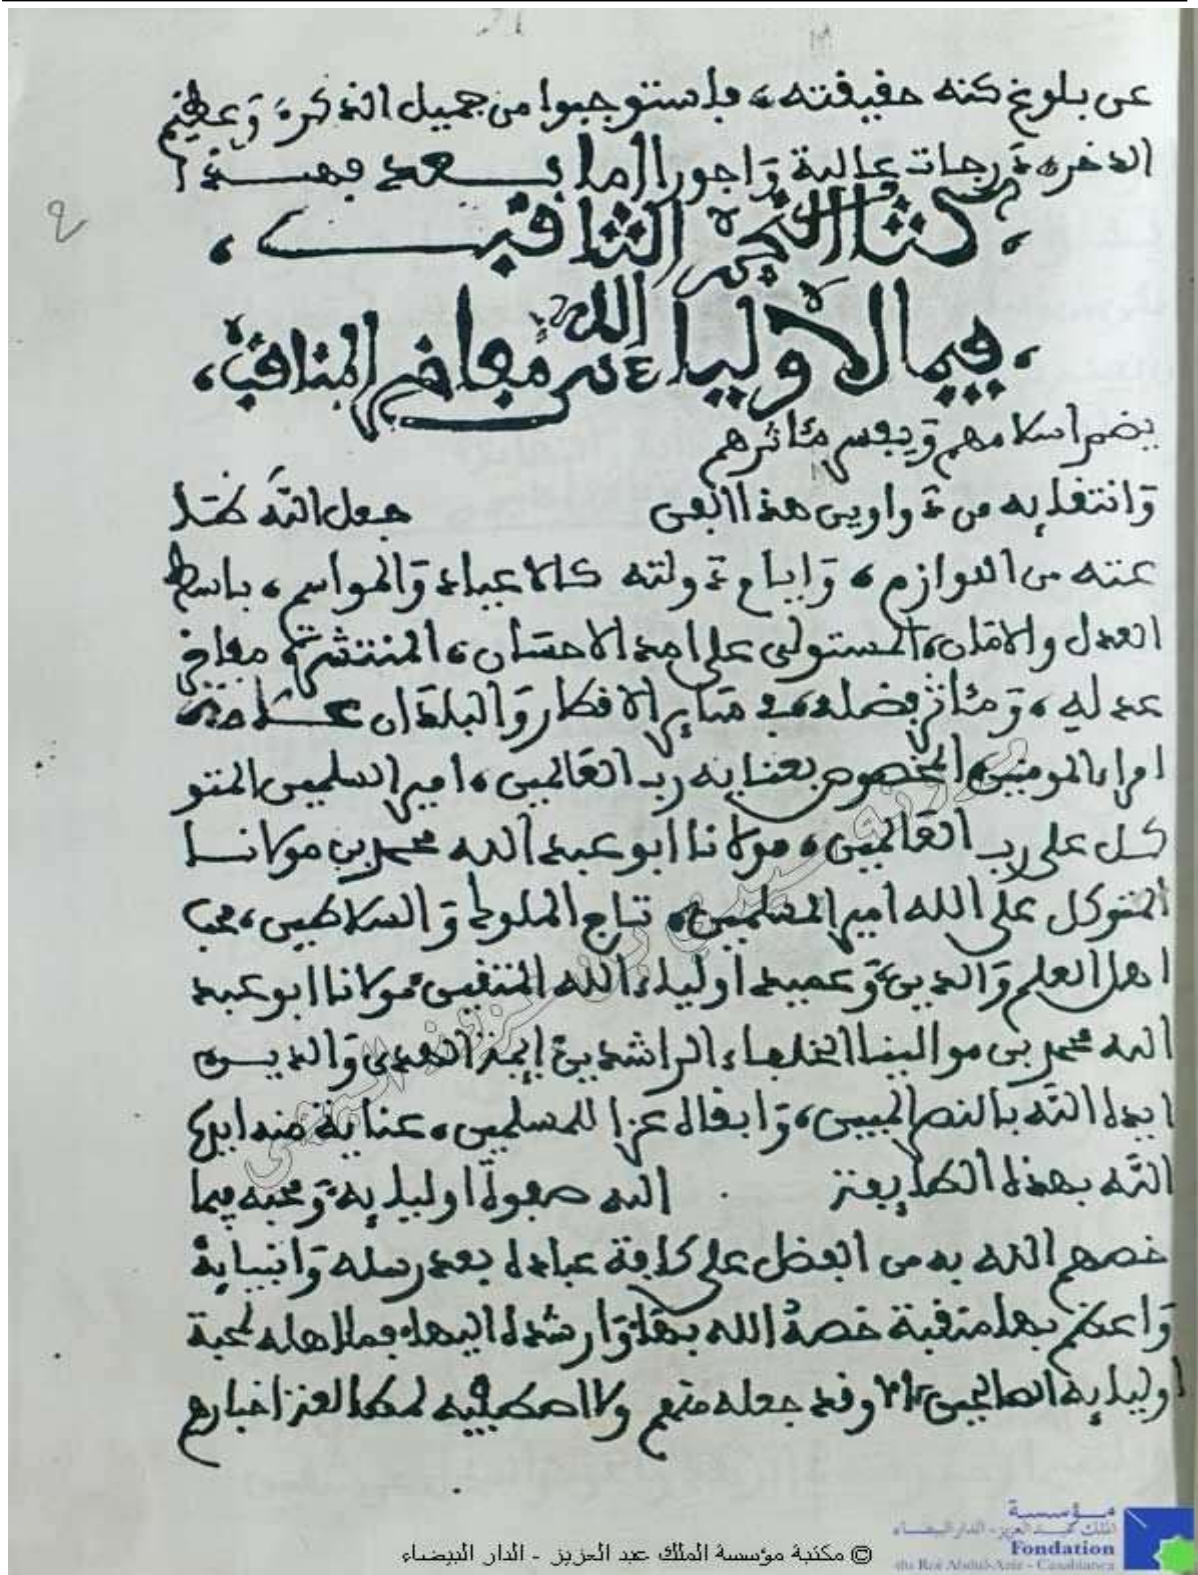 عن بلوغ كنه حقيقته، فاستوجبوا من جميل الذكر وعظيم
الذخر، درجات عالية واجورا اما بعد فهذا
كتاب النجم الثاقب،
فيما لاولياء الله من مفاخر المناقب،
يضم اسلامهم ويفسر مئاثرهم
وانتقايه من دواوين هذا الفن جعل الله
عنه من اللوازم، وايام دولته كالاعياد والمواسم، باسط
العدل والامان، المستولي على امد الاحسان، المنتشرة مفاخر
عدله، ومئاثر فضله، في سائر الافكار والبلدان
امراء المومنين، المخصوص بعناية رب العالمين، امير المسلمين المتو
كل على رب العالمين، مولانا ابو عبد الله محمد بن مولانا
المتوكل على الله امير المسلمين، تاج الملوك والسلاطين، محب
اهل العلم والدين، وعميد اولياء الله المتقين مولانا ابو عبد
الله محمد بن موالينا الخلفاء الراشدين ايمة الهدى والدين
ايده الله بالنصر المبين، وابقاه عزا للمسلمين، عناية منه ايده
الله بهذه الله صفوة اوليايه ومحبه فيما
خصهم الله به من الفضل على كافة عباده بعد رسله وانبيايه
واعظم بها منقبة خصه الله بها، وارشده اليها، فما اهله لمحبة
اوليايه الصالحين، وقد جعله منهم ولا اخبارهم
٩
مؤسسة
الملك عبد العزيز - الدار البيضاء
Fondation
du Roi Abdul-Aziz - Casablanca
© مكتبة مؤسسة الملك عبد العزيز - الدار البيضاء